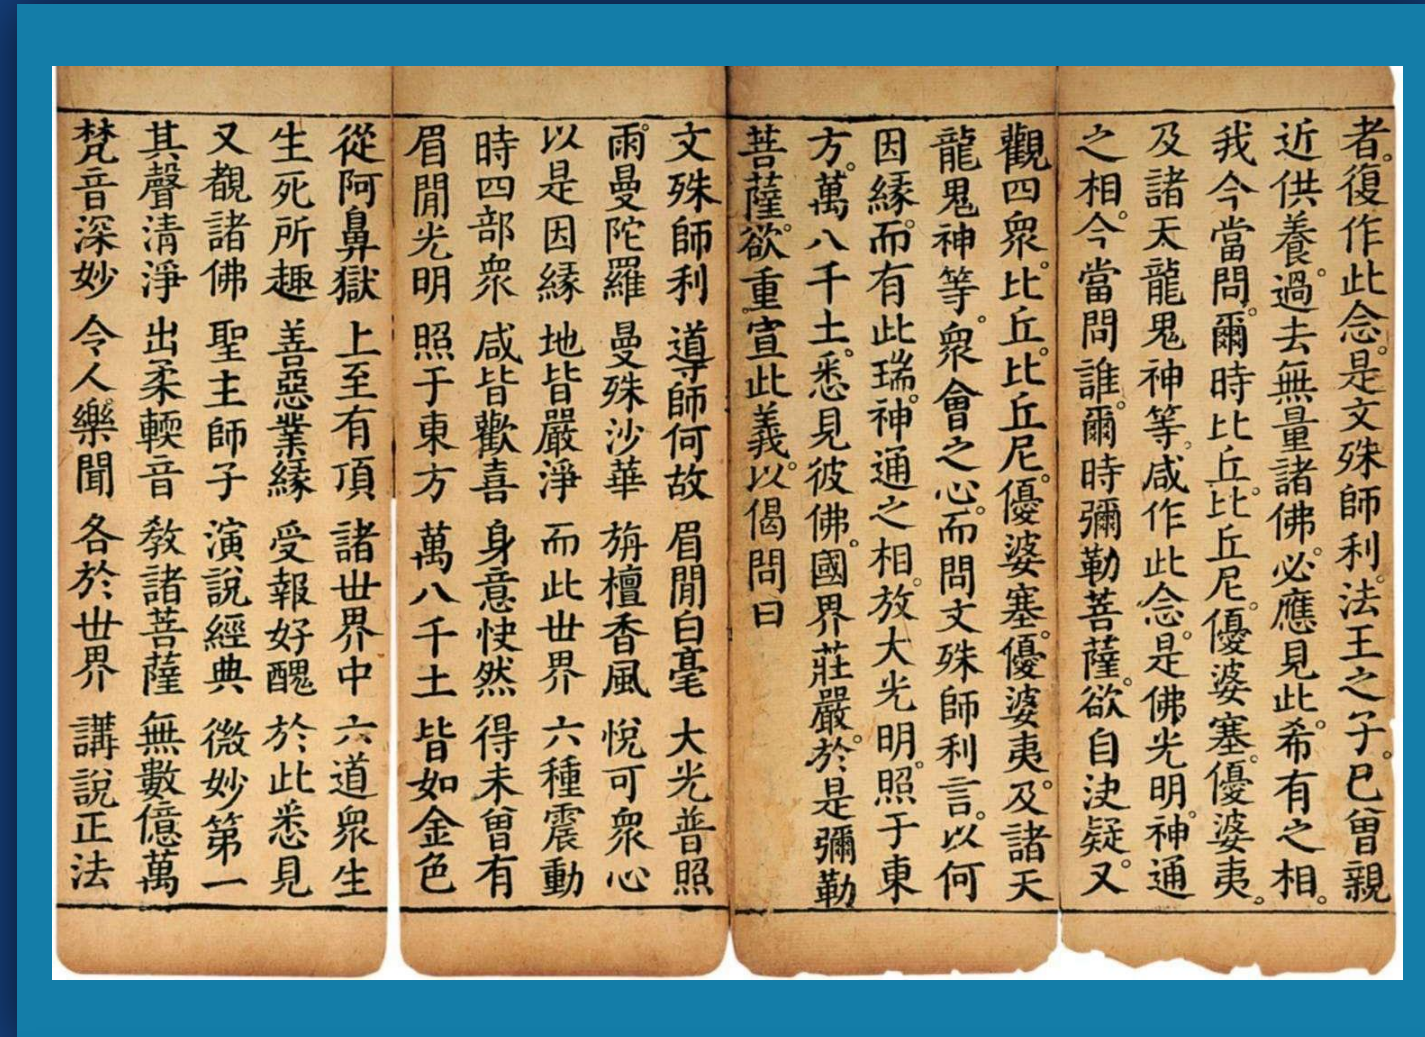 者。復作此念。是文殊師利。法王之子。已曾親
近供養。過去無量諸佛。必應見此。希有之相。
我今當問。爾時比丘。比丘尼。優婆塞。優婆夷。
及諸天龍鬼神等。咸作此念。是佛光明。神通
之相。今當問誰。爾時彌勒菩薩。欲自決疑。又
觀四眾。比丘。比丘尼。優婆塞。優婆夷。及諸天
龍鬼神等。眾會之心。而問文殊師利言。以何
因緣。而有此瑞。神通之相。放大光明。照于東
方。萬八千土。悉見彼佛。國界莊嚴。於是彌勒
菩薩。欲重宣此義。以偈問曰
文殊師利 導師何故 眉間白毫 大光普照
雨曼陀羅 曼殊沙華 旃檀香風 悅可眾心
以是因緣 地皆嚴淨 而此世界 六種震動
時四部眾 咸皆歡喜 身意快然 得未曾有
眉間光明 照于東方 萬八千土 皆如金色
從阿鼻獄 上至有頂 諸世界中 六道眾生
生死所趣 善惡業緣 受報好醜 於此悉見
又覩諸佛 聖主師子 演說經典 微妙第一
其聲清淨 出柔輭音 教諸菩薩 無數億萬
梵音深妙 令人樂聞 各於世界 講說正法